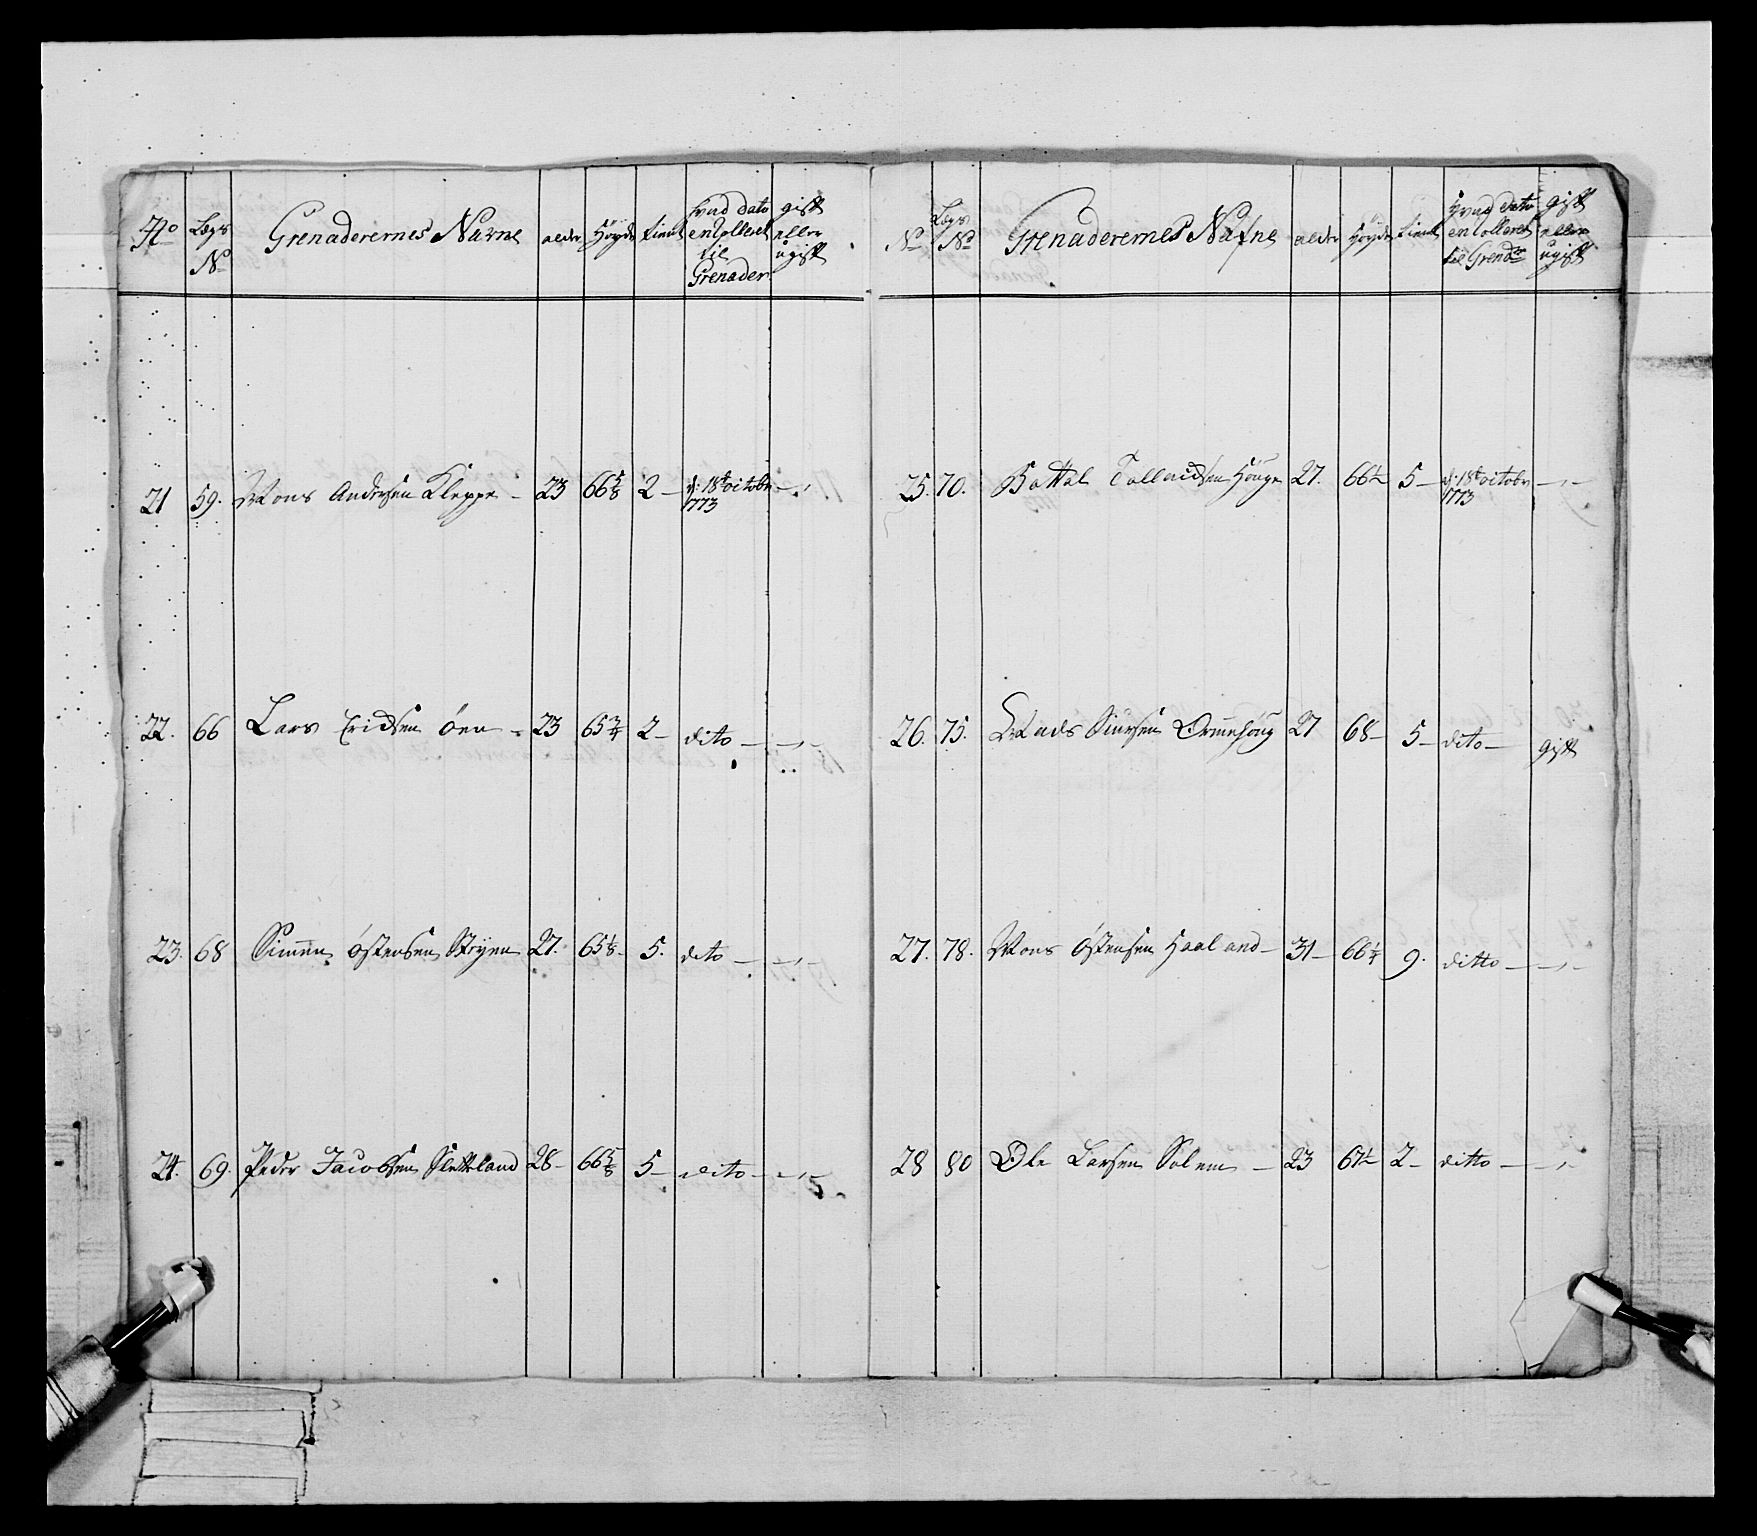 No Legs No Grenaderernes Navne alder Høyde tient hvad dato enrolleret til Grenader gift eller ugift
21 59. Mons Andersen Kleppe - 23 66 5/8 2 - d: 18t octobr 1773 - , -
22. 66 Lars Ericksen Öen - 23 65 3/4 2 - dito - - , -
23. 68 Simen Östensen 27. 65 1/8 - 5. dito - - , -
24. 69. Peder Jacobsen Sletteland 28 - 66 5/8 5 - dito - - , -
No Legs No Grenaderernes Nafne alder Høyde tient Hvad dato enrolleret til Grendr gift eller ugift
25. 70. 27. 66 1/2 5 - d: 18t octobr 1773 - , -
26. 75. Mads Siursen 27 68 - 5 - dito - gift
27. 78. Mons Östensen Haaland - 31 - 66 1/4 9. ditto - - , -
28 80 Ole Larsen Solem - 23 67 1/2 2 - ditto - - , -